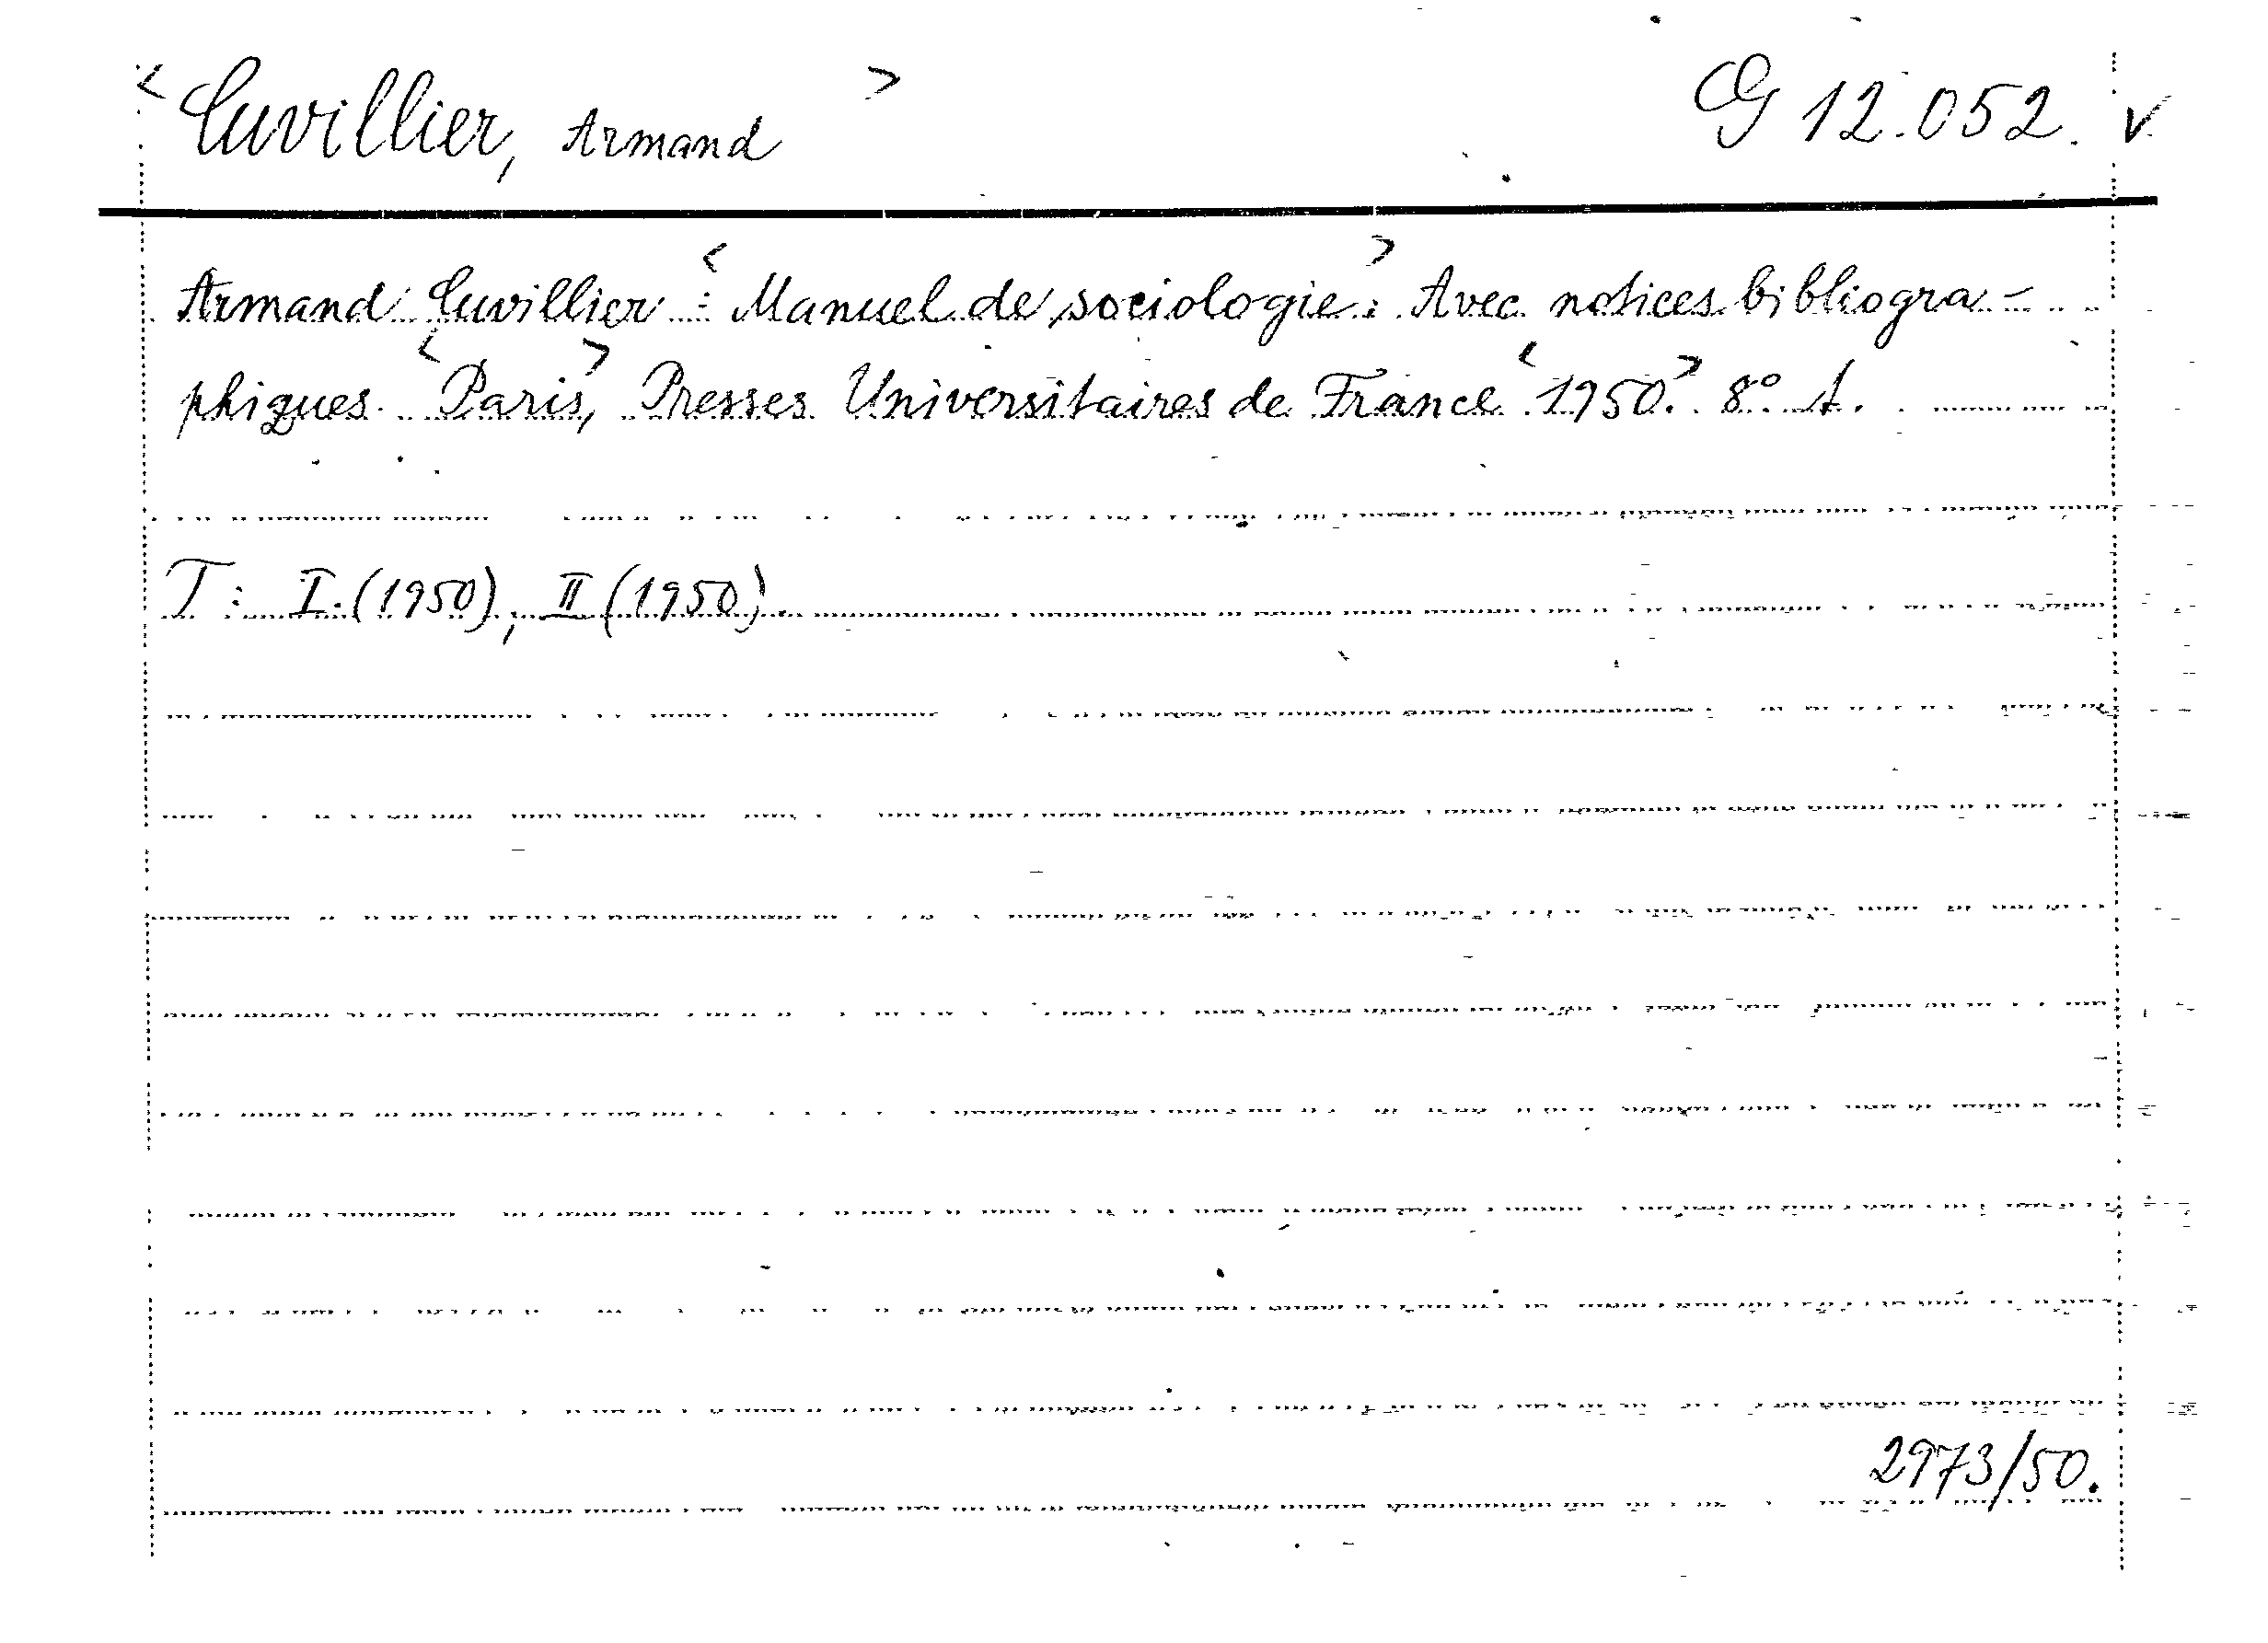 < Cuvillier, Armand > CG 12.052. v
Armand Cuvillier: <Manuel de sociologie>: Avec notices bibliogra-
phiques. <Paris>, Presses Universitaires de France <1950.> 8° t.
T: I. (1950), II (1950).
2973/50.